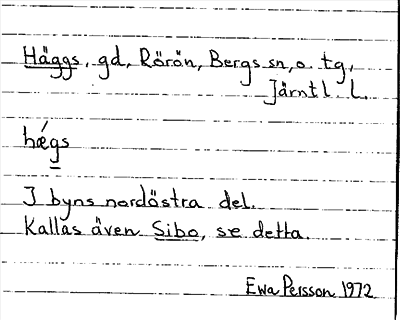 Häggs, gd, Rörön, Bergs sn, o. tg,
Jämtl. l.
hǽgs
I byns nordöstra del.
Kallas även Sibo, se detta.
Ewa Persson 1972